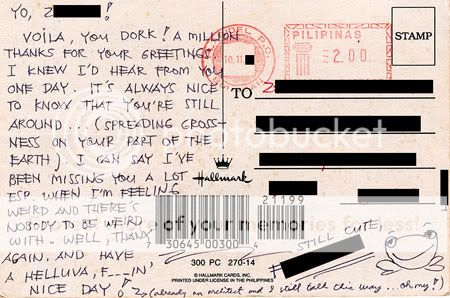 YO, Z !
VOILA, YOU DORK! A MILLION
THANKS FOR YOUR GREETINGS.
I KNEW I'D HEAR FROM YOU
ONE DAY. IT'S ALWAYS NICE
TO KNOW THAT YOU'RE STILL
AROUND... (SPREADING GROSS-
NESS ON YOUR PART OF THE
EARTH). I CAN SAY I'VE
BEEN MISSING YOU A LOT
ESP. WHEN I'M FEELING
WEIRD AND THERE'S
NOBODY TO BE WEIRD
WITH. WELL, THANX
AGAIN, AND HAVE
A HELLUVA, F---IN'
NICE DAY!
P.O.
10.11
PILIPINAS
2.00
STAMP
TO
Hallmark
21199
7 30645 00300 4
300 PC 270-14
© HALLMARK CARDS, INC.
PRINTED UNDER LICENSE IN THE PHILIPPINES
STILL CUTE,
(already an architect and I still talk this way... oh my!)
photobucket
of your memories